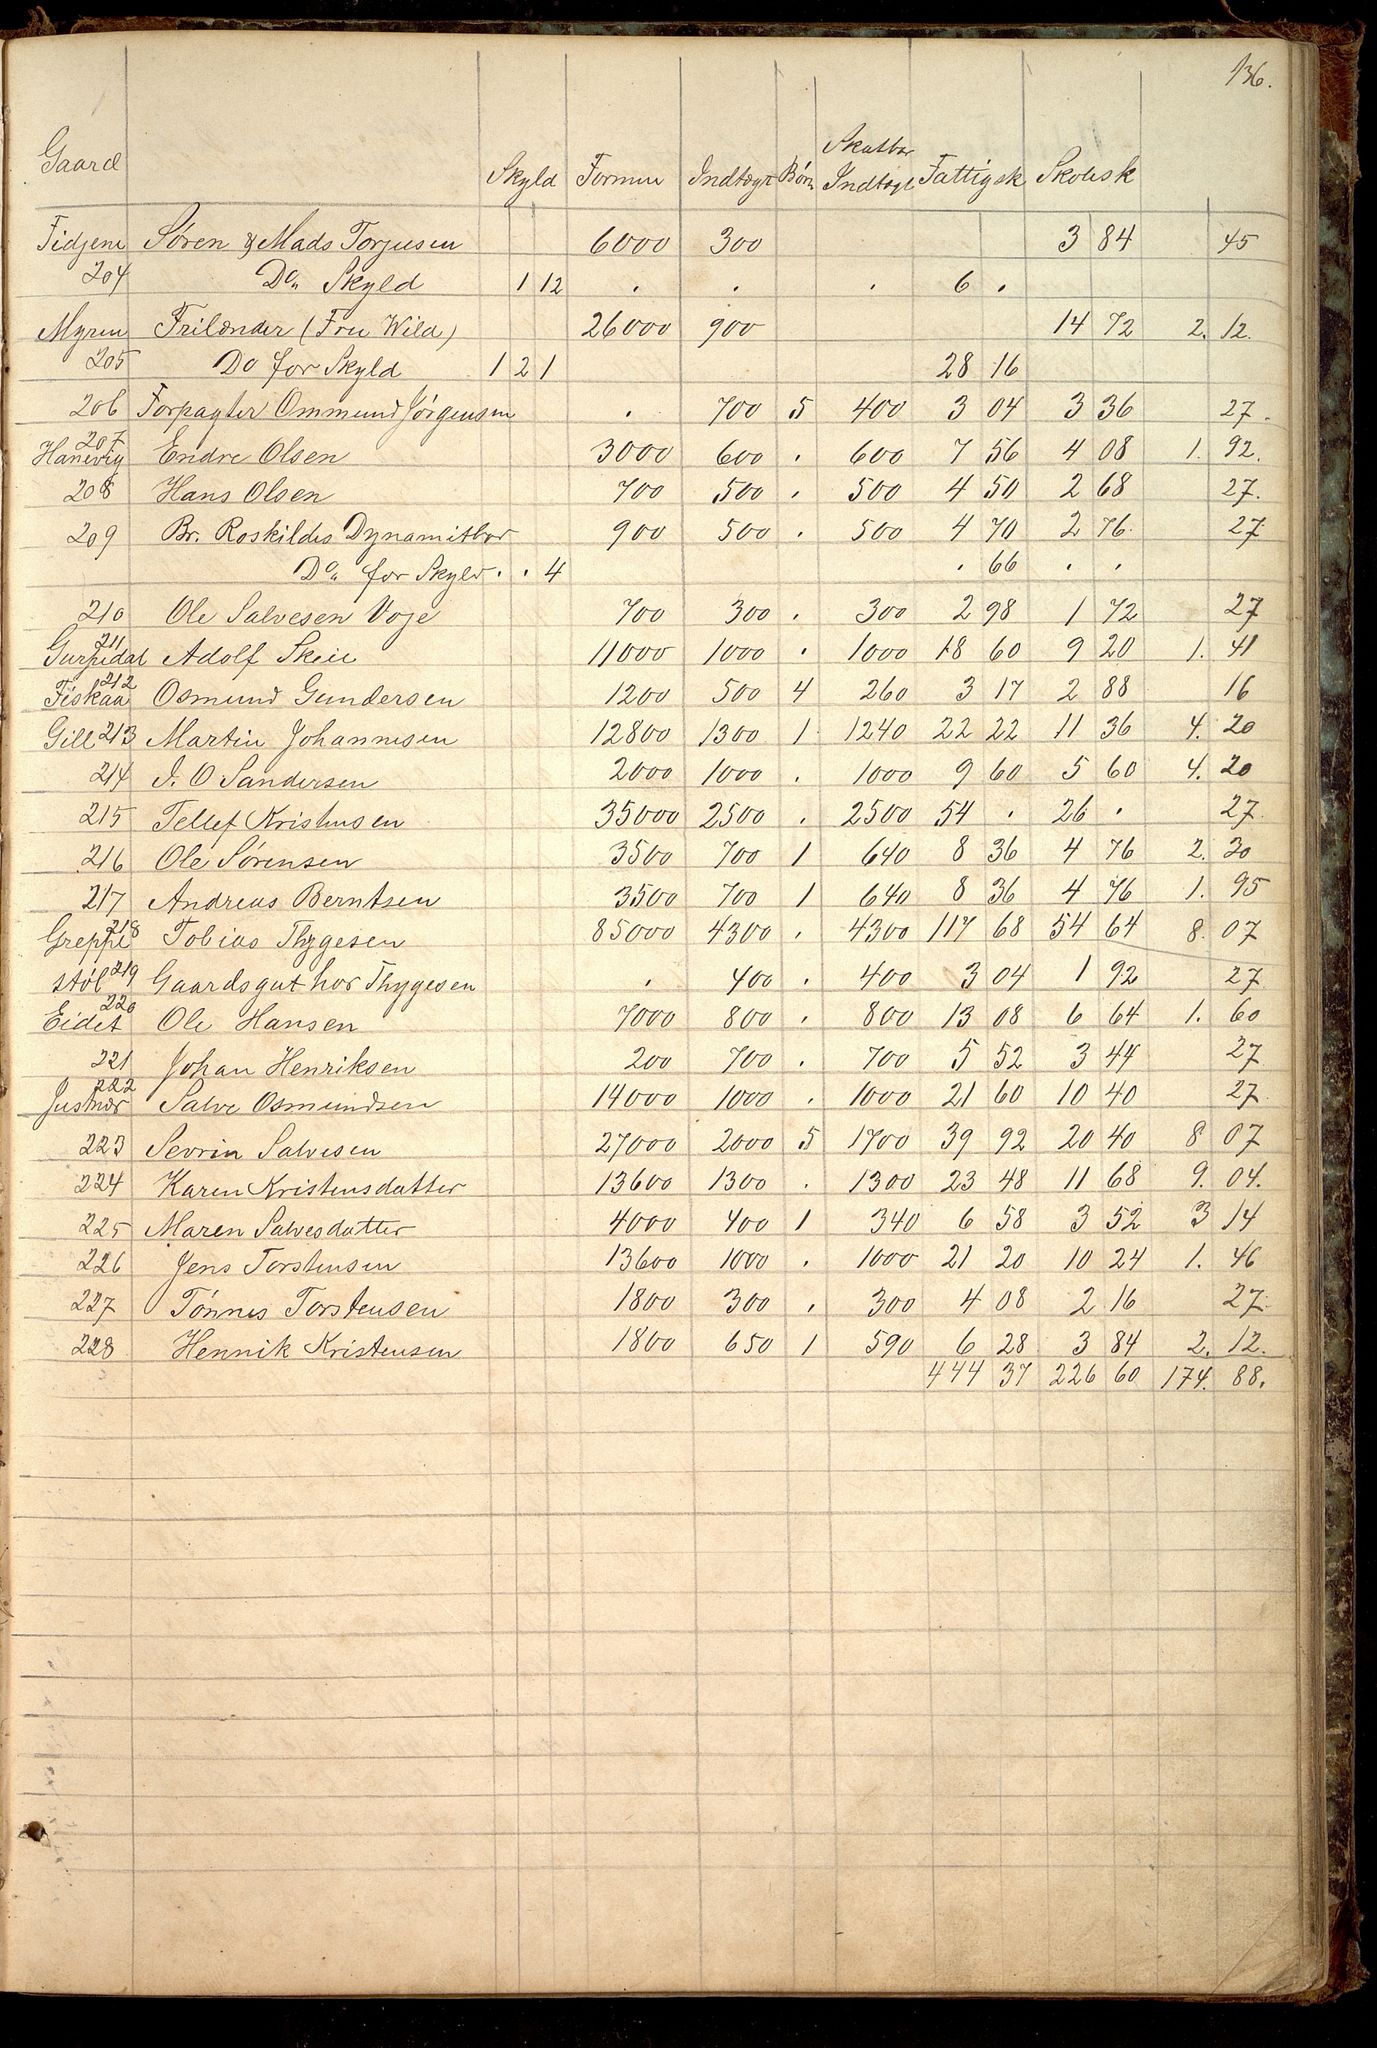 136.
Gaard Skyld Formue Indtægt Børn Skatbar Indtægt Fattigsk Skolesk
Fidjene Søren & Mads Torjusen 6000 300 3 84 45
204 Do„ Skyld 1 12 . . . 6 .
Myren Frilænder (Fru Wild) 26000 900 14 72 2. 12.
205 Do for Skyld 1 2 1 28 16
206 Forpagter Ommund Jørgensen . 700 5 400 3 04 3 36 27.
207 Hanevig Endre Olsen 3000 600 . 600 7 56 4 08 1. 92.
208 Hans Olsen 700 500 . 500 4 50 2 68 27.
209 Br. Roskildes Dynamitbor 900 500 . 500 4 70 2 76 27
Do„ for Skyld . . 4 . 66 . .
210 Ole Salvesen Voje 700 300 . 300 2 98 1 72 27
211 Adolf Skeie 11000 1000 . 1000 18 60 9 20 1. 41
212 Fiskaa Osmund Gundersen 1200 500 4 260 3 17 2 88 16
Gill 213 Martin Johannesen 12800 1300 1 1240 22 22 11 36 4. 20
214 J. O Sandersen 2000 1000 . 1000 9 60 5 60 4. 20
215 Tellef Kristensen 35000 2500 . 2500 54 . 26 . 27.
216 Ole Sørensen 3500 700 1 640 8 36 4 76 2. 30
217 Andreas Berntsen 3500 700 1 640 8 36 4 76 1. 95
Greppe 218 Tobias Thygesen 85000 4300 . 4300 117 68 54 64 8. 07
støl 219 Gaardsgut hos Thygesen . 400 . 400 3 04 1 92 27
220 Eidet Ole Hansen 7000 800 . 800 13 08 6 64 1. 60
221 Johan Henriksen 200 700 . 700 5 52 3 44 27
222 Justnæs Salve Osmundsen 14000 1000 . 1000 21 60 10 40 27.
223 Sevrin Salvesen 27000 2000 5 1700 39 92 20 40 8 07
224 Karen Kristensdatter 13600 1300 . 1300 23 48 11 68 9. 04.
225 Maren Salvesdatter 4000 400 1 340 6 58 3 52 3 14
226 Jens Torstensen 13600 1000 . 1000 21 20 10 24 1. 46
227 Tønnes Torstensen 1800 300 . 300 4 08 2 16 27.
228 Hennik Kristensen 1800 650 1 590 6 28 3 84 2. 12.
444 37 226 60 174. 88.